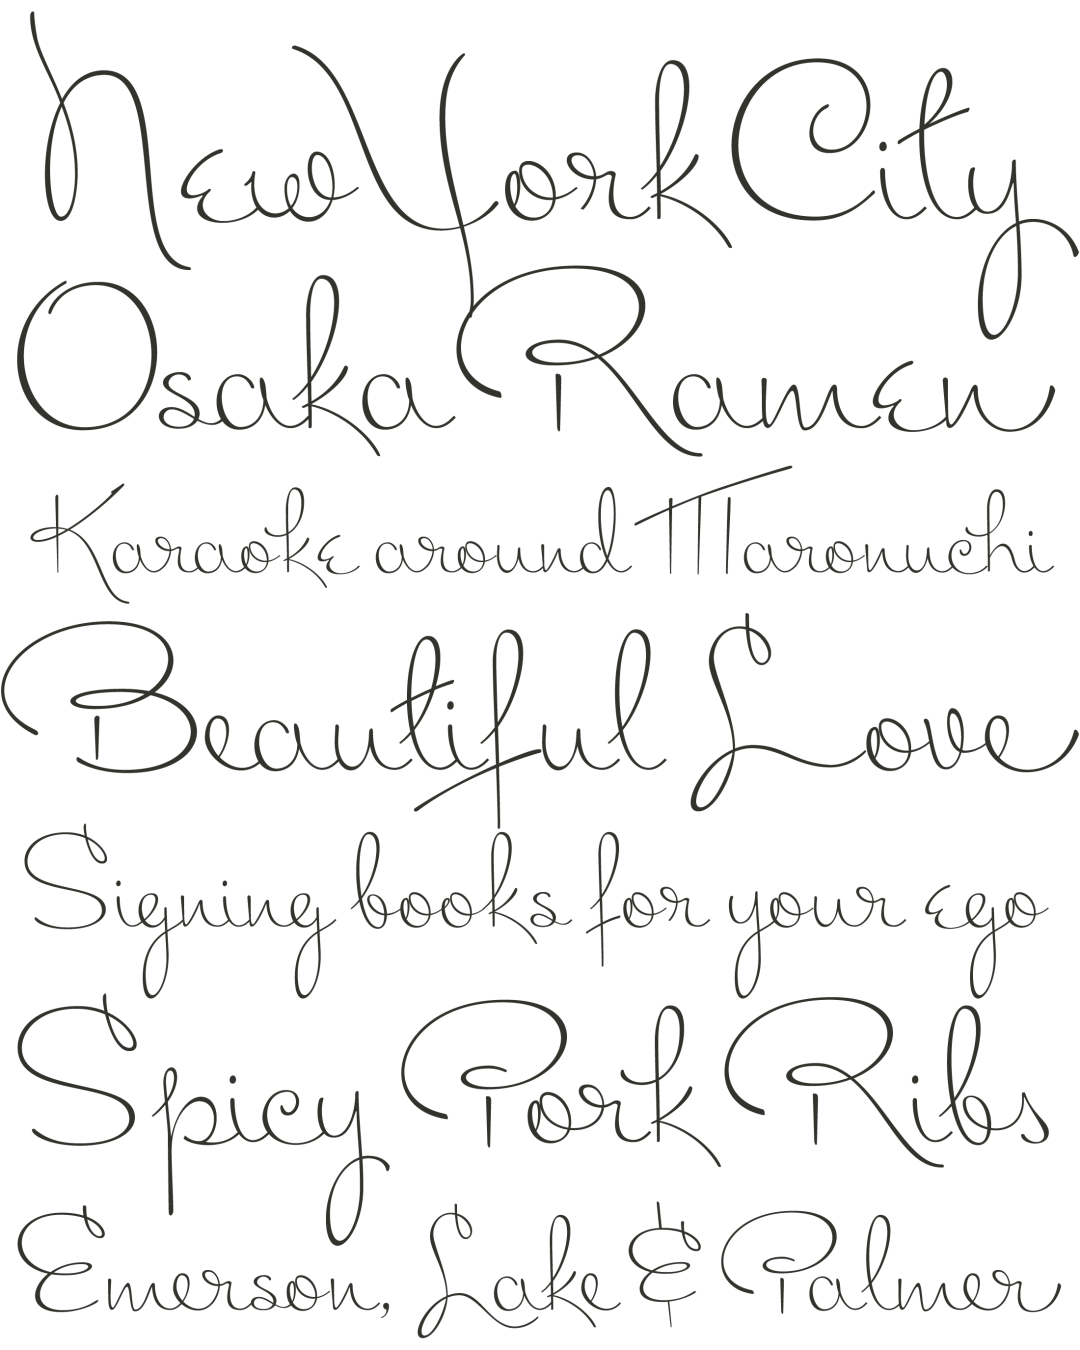 New York City
Osaka Ramen
Karaoke around Maronuchi
Beautiful Love
Signing books for your ego
Spicy Pork Ribs
Emerson, Lake & Palmer